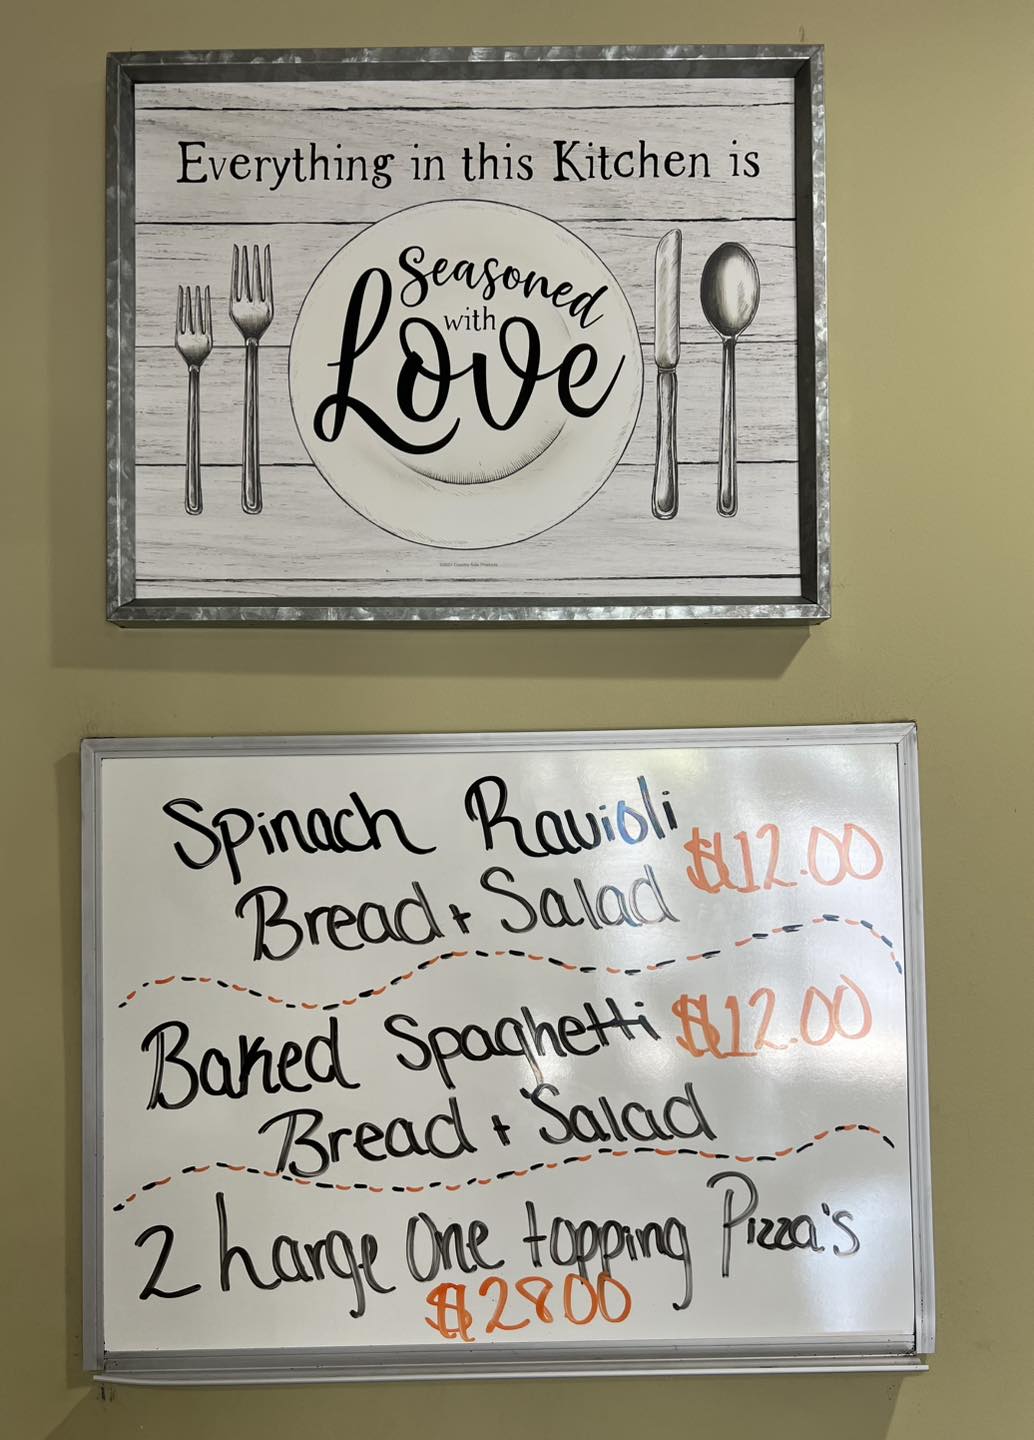 Everything in this Kitchen is
Seasoned
with
Love
©2021 Country Side Products
Spinach Ravioli
$12.00
Bread + Salad
Baked Spaghetti $12.00
Bread + Salad
2 Large One topping Pizza's
$2800